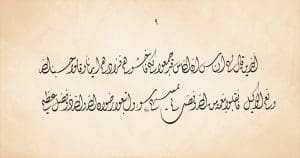 الذين قال لهم الناس إن الناس قد جمعوا لكم فاخشوهم فزادهم إيمانا وقالوا حسبنا الله
ونعم الوكيل فانقلبوا بنعمة من الله وفضل لم يمسسهم سوء واتبعوا رضوان الله والله ذو فضل عظيم